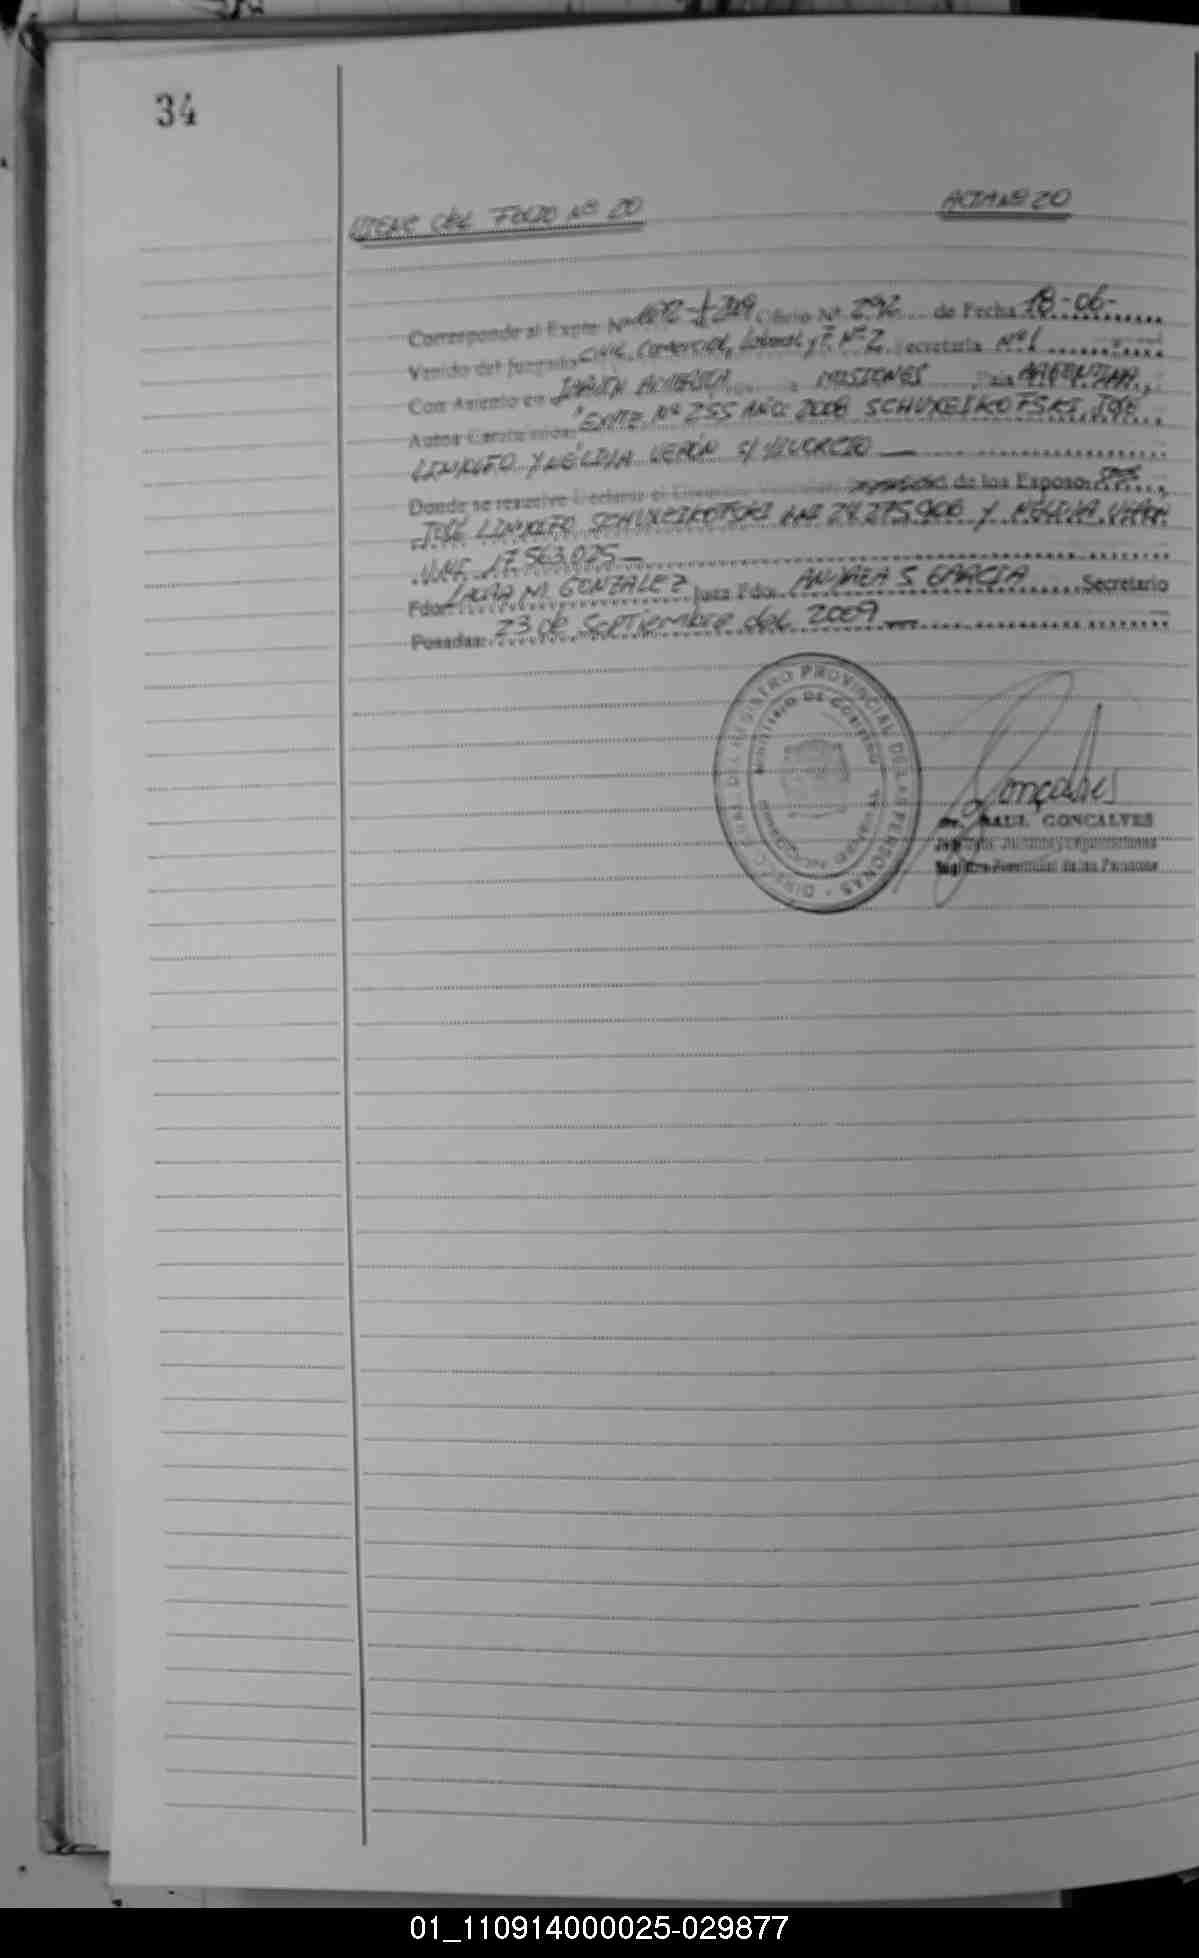 34
VIENE DEL FOLIO Nº 20 ACTA Nº 20
Corresponde al Expte Nº 1672-I-2009 Oficio Nº 292 de Fecha 18-06-
Venido del Juzgado Civil, Comercial, Laboral y F. Nº 2 Secretaría Nº 1
Con Asiento en JARDIN AMERICA MISIONES País ARGENTINA,
Autos Caratulados: "EXPTE. Nº 255 AÑO: 2008 SCHUXEIKOFSKI, JOSE
LINDOLFO Y NÉLIDA VERÓN S/ DIVORCIO
Donde se resuelve Declarar el Vincular de los Esposos
JOSÉ LINDOLFO SCHUXEIKOFSKI DNI 24.275.906 Y NELIDA VERON
D.N.I. 17.563.025
Fdo: LAURA M. GONZALEZ Juez Fdo: ANDREA S. GARCIA Secretario
Posadas: 23 de Septiembre del 2009
DEL REGISTRO PROVINCIAL DE LAS PERSONAS
MINISTERIO DE GOBIERNO
Gonçalves
RAUL GONCALVES
Registro Provincial de las Personas
01_110914000025-029877